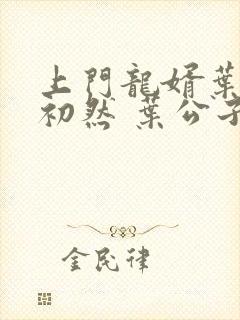 上門龍婿葉
初然 葉公子
金民律